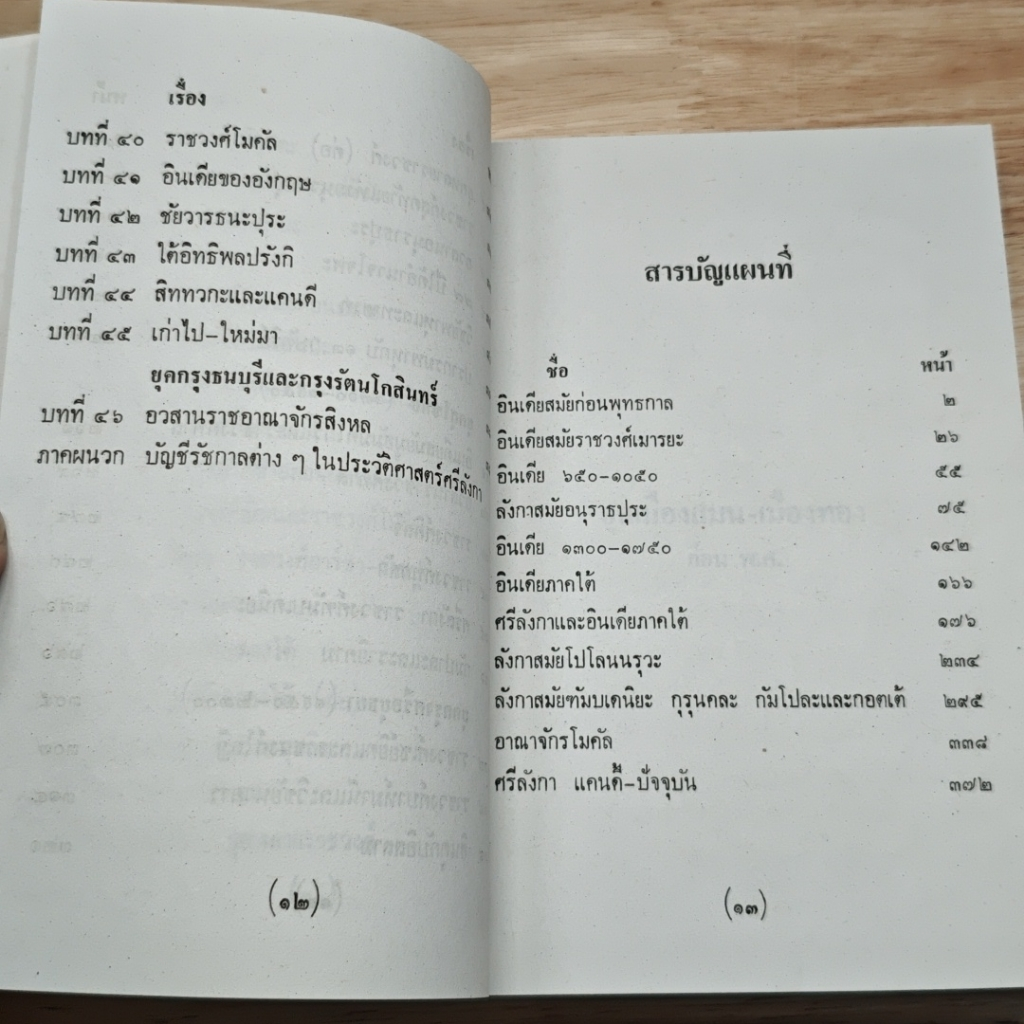 เรื่อง
บทที่ ๔๐ ราชวงศ์โมคัล
บทที่ ๔๑ อินเดียของอังกฤษ
บทที่ ๔๒ ชัยวารธนะปุระ
บทที่ ๔๓ ใต้อิทธิพลปรังกิ
บทที่ ๔๔ สิททวกะและแคนดี
บทที่ ๔๕ เก่าไป-ใหม่มา
ยุคกรุงธนบุรีและกรุงรัตนโกสินทร์
บทที่ ๔๖ อวสานราชอาณาจักรสิงหล
ภาคผนวก บัญชีรัชกาลต่าง ๆ ในประวัติศาสตร์ศรีลังกา
(๑๒)
สารบัญแผนที่
ชื่อ หน้า
อินเดียสมัยก่อนพุทธกาล ๒
อินเดียสมัยราชวงศ์เมารยะ ๒๖
อินเดีย ๖๕๐-๑๐๕๐ ๕๕
ลังกาสมัยอนุราธปุระ ๗๕
อินเดีย ๑๓๐๐-๑๗๕๐ ๑๔๒
อินเดียภาคใต้ ๑๖๖
ศรีลังกาและอินเดียภาคใต้ ๑๗๖
ลังกาสมัยโปโลนนรุวะ ๒๓๔
ลังกาสมัยฑัมบเดนิยะ กุรุนคละ กัมโปละและกอตเต้ ๒๙๕
อาณาจักรโมคัล ๓๓๘
ศรีลังกา แคนดี้-ปัจจุบัน ๓๗๒
(๑๓)